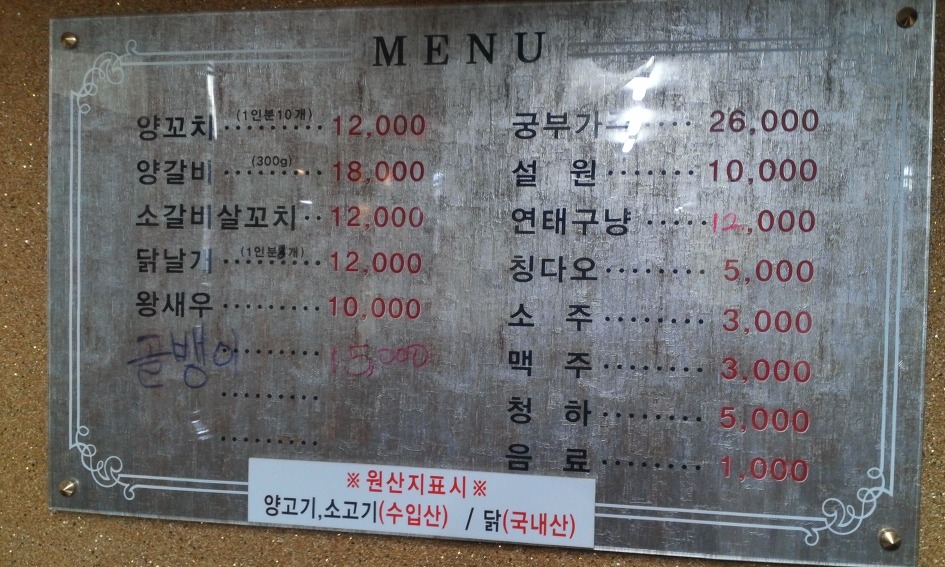 MENU
양꼬치 (1인분10개) 12,000
양갈비 (300g) 18,000
소갈비살꼬치 12,000
닭날개 (1인분 개) 12,000
왕새우 10,000
골뱅이 15,000
궁부가주 26,000
설 원 10,000
연태구냥 12,000
칭다오 5,000
소 주 3,000
맥 주 3,000
청 하 5,000
음 료 1,000
※원산지표시※
양고기,소고기(수입산) / 닭(국내산)